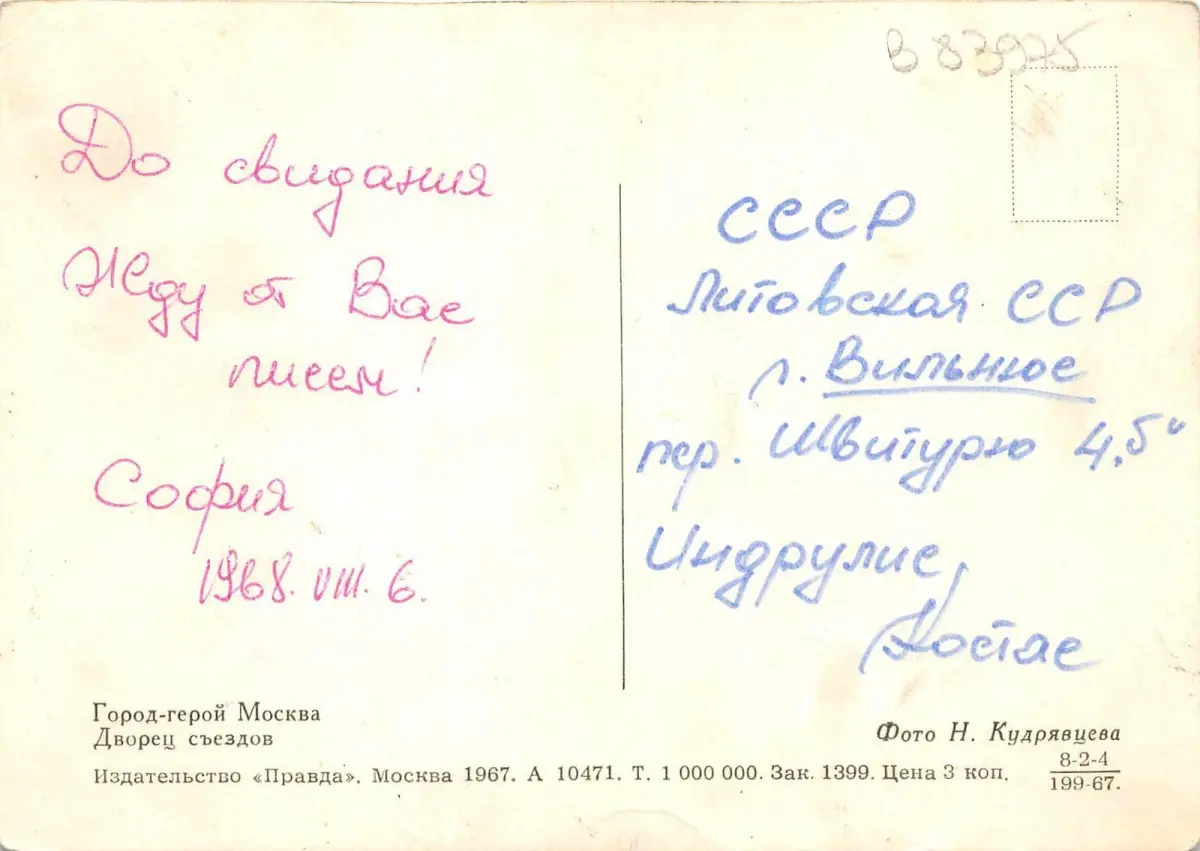 В 83975
До свидания
Жду от Вас
писем!
София
1968. VIII. 6.
СССР
Литовская ССР
г. Вильнюс
пер. Швитурю 4.5"
Индрулис,
Костас
Город-герой Москва
Дворец съездов
Фото Н. Кудрявцева
Издательство «Правда». Москва 1967. А 10471. Т. 1 000 000. Зак. 1399. Цена 3 коп.
8-2-4
199-67.